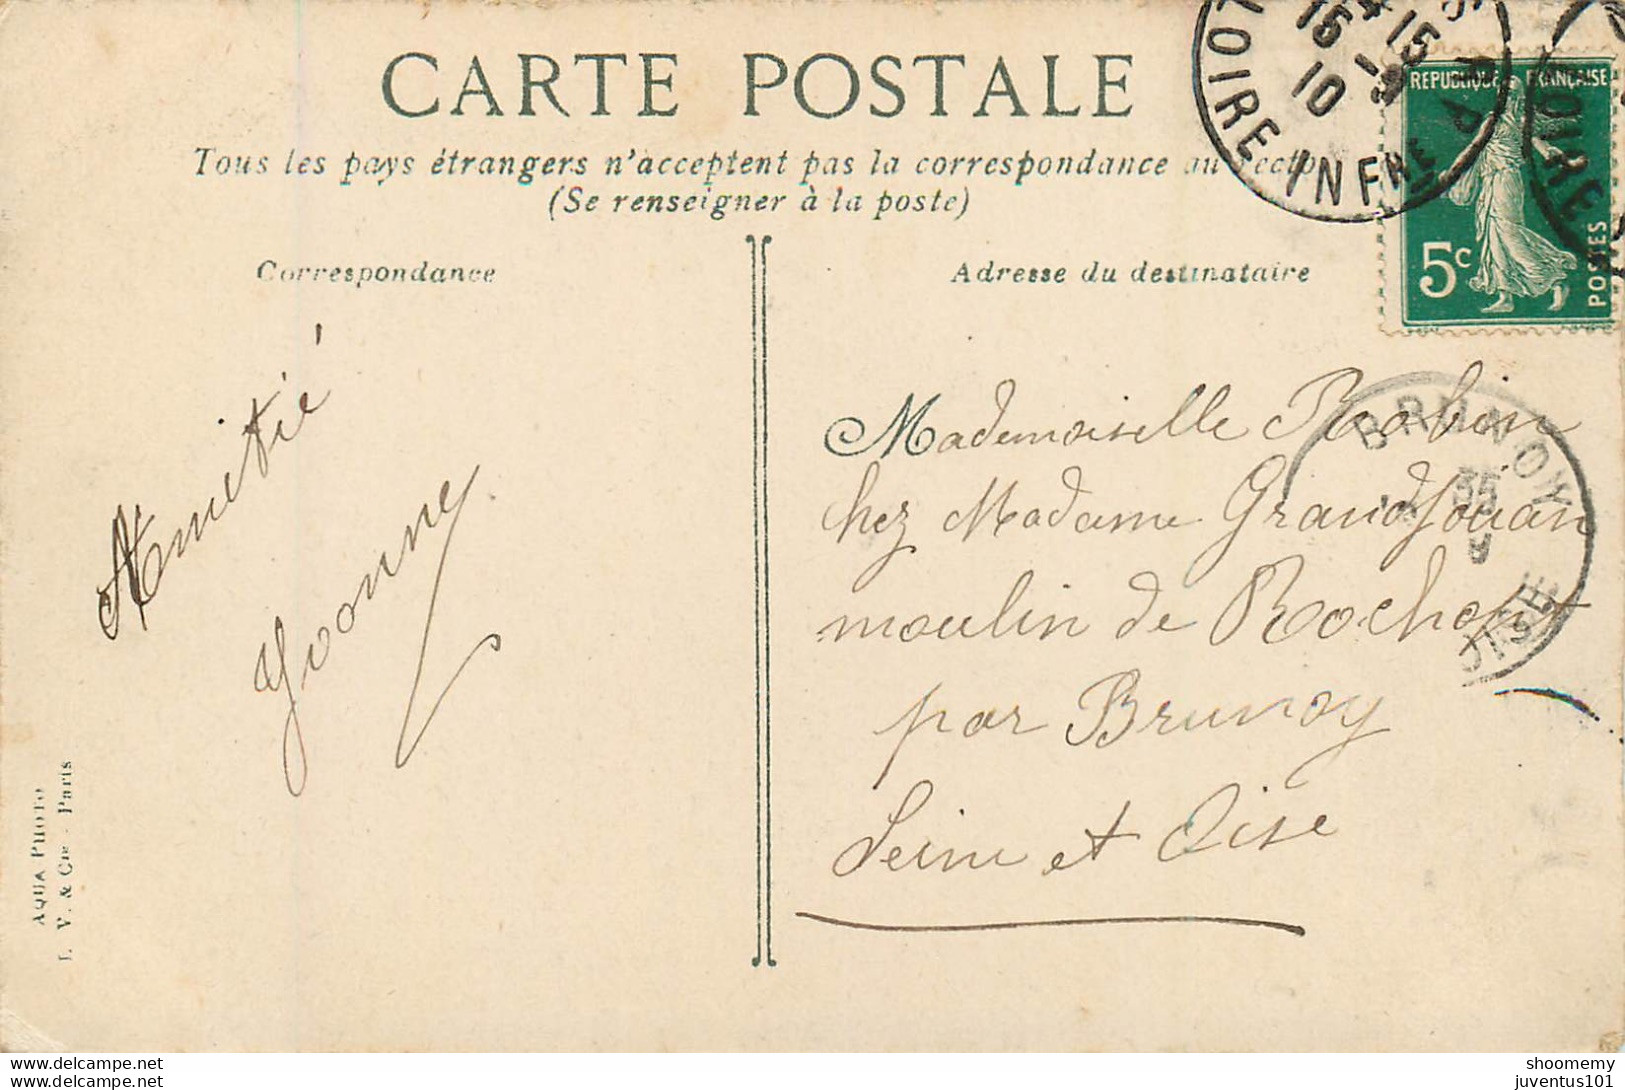 CARTE POSTALE
Tous les pays étrangers n'acceptent pas la correspondance au recto
(Se renseigner à la poste)
Correspondance
Adresse du destinataire
REPUBLIQUE FRANÇAISE
5c
POSTES
15
16 - 9
10
LOIRE INFRE
OIRE
BRUNOY
OISE
Amitié
Yvonne
Mademoiselle Robin
chez Madame Grandjouan
moulin de Rochopt
par Brunoy
Seine et Oise
AQUA PHOTO
L. V. & Cie - Paris
delcampe.net
shoomemy
juventus101